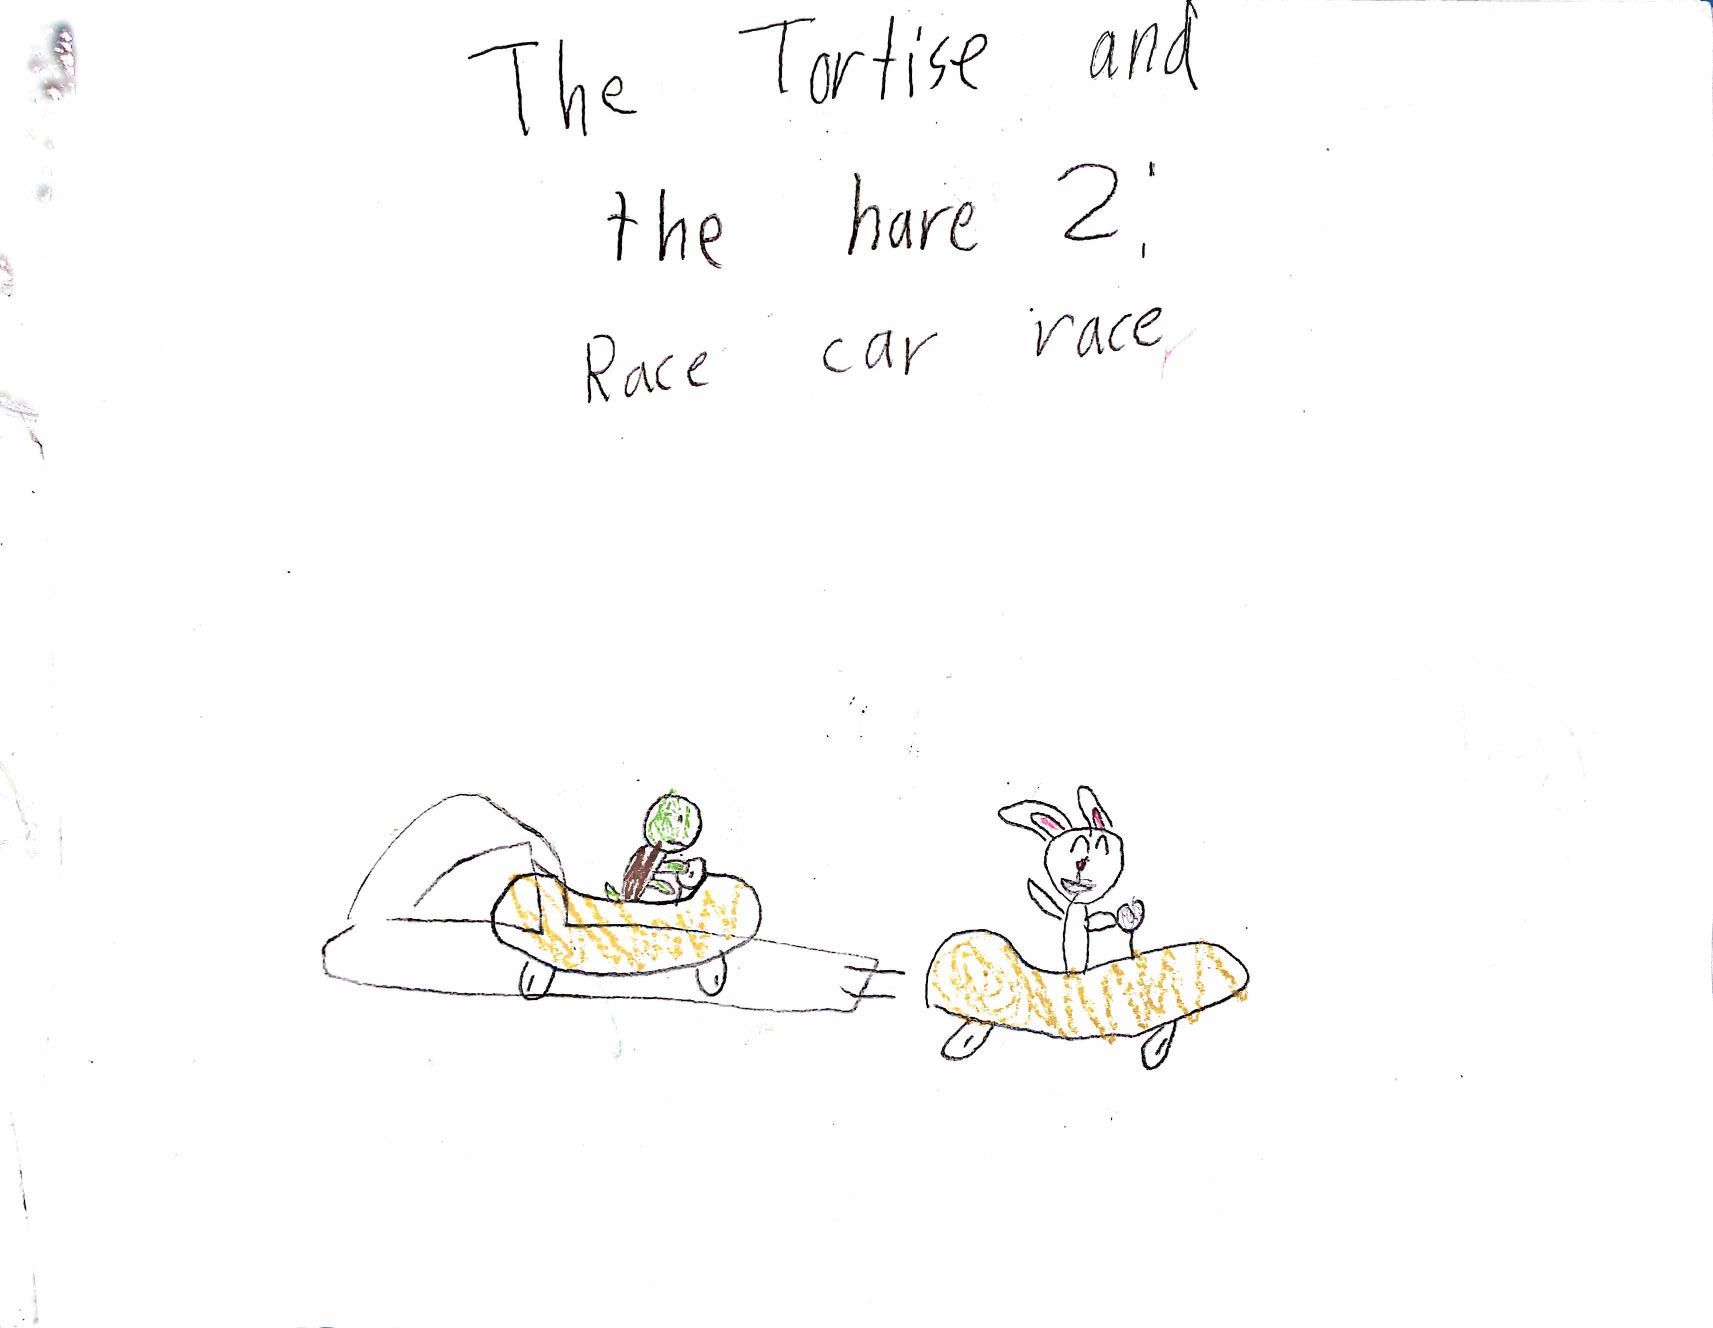 The Tortise and
the hare 2:
Race car race